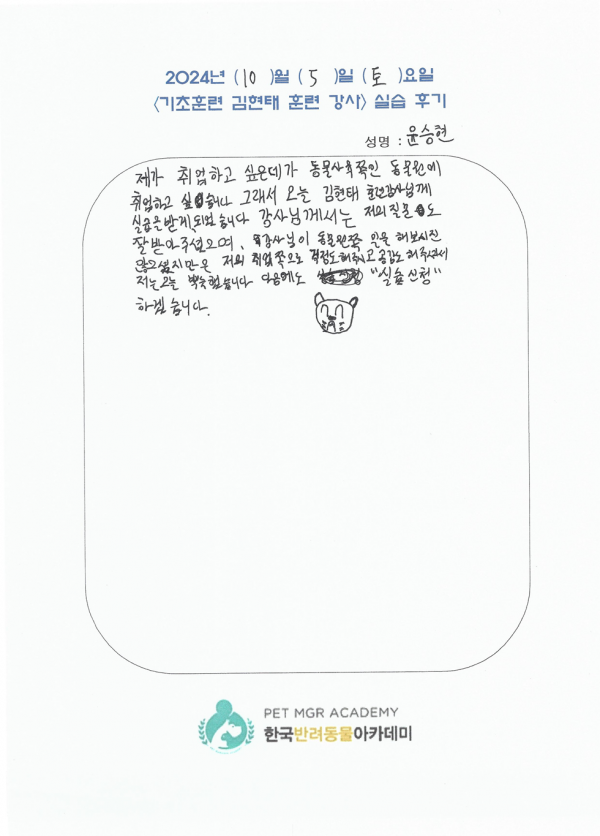 2024년 (10)월 (5)일 (토)요일
<기초훈련 김현태 훈련 강사> 실습 후기
성명 : 윤승현
제가 취업하고 싶은데가 동물사육쪽인 동물원에
취업하고 싶습니다 그래서 오늘 김현태 훈련강사님께
실습을받게되었습니다 강사님께서는 저의질문도
잘받아주셨으며, 강사님이 동물원쪽 일을 해보시진
않으셨지만은 저의 취업쪽으로 걱정도해주시고 공감도 해주셔서
저는 뿌듯했습니다 다음에도 "실습 신청"
하겠습니다.
PET MGR ACADEMY
한국반려동물아카데미